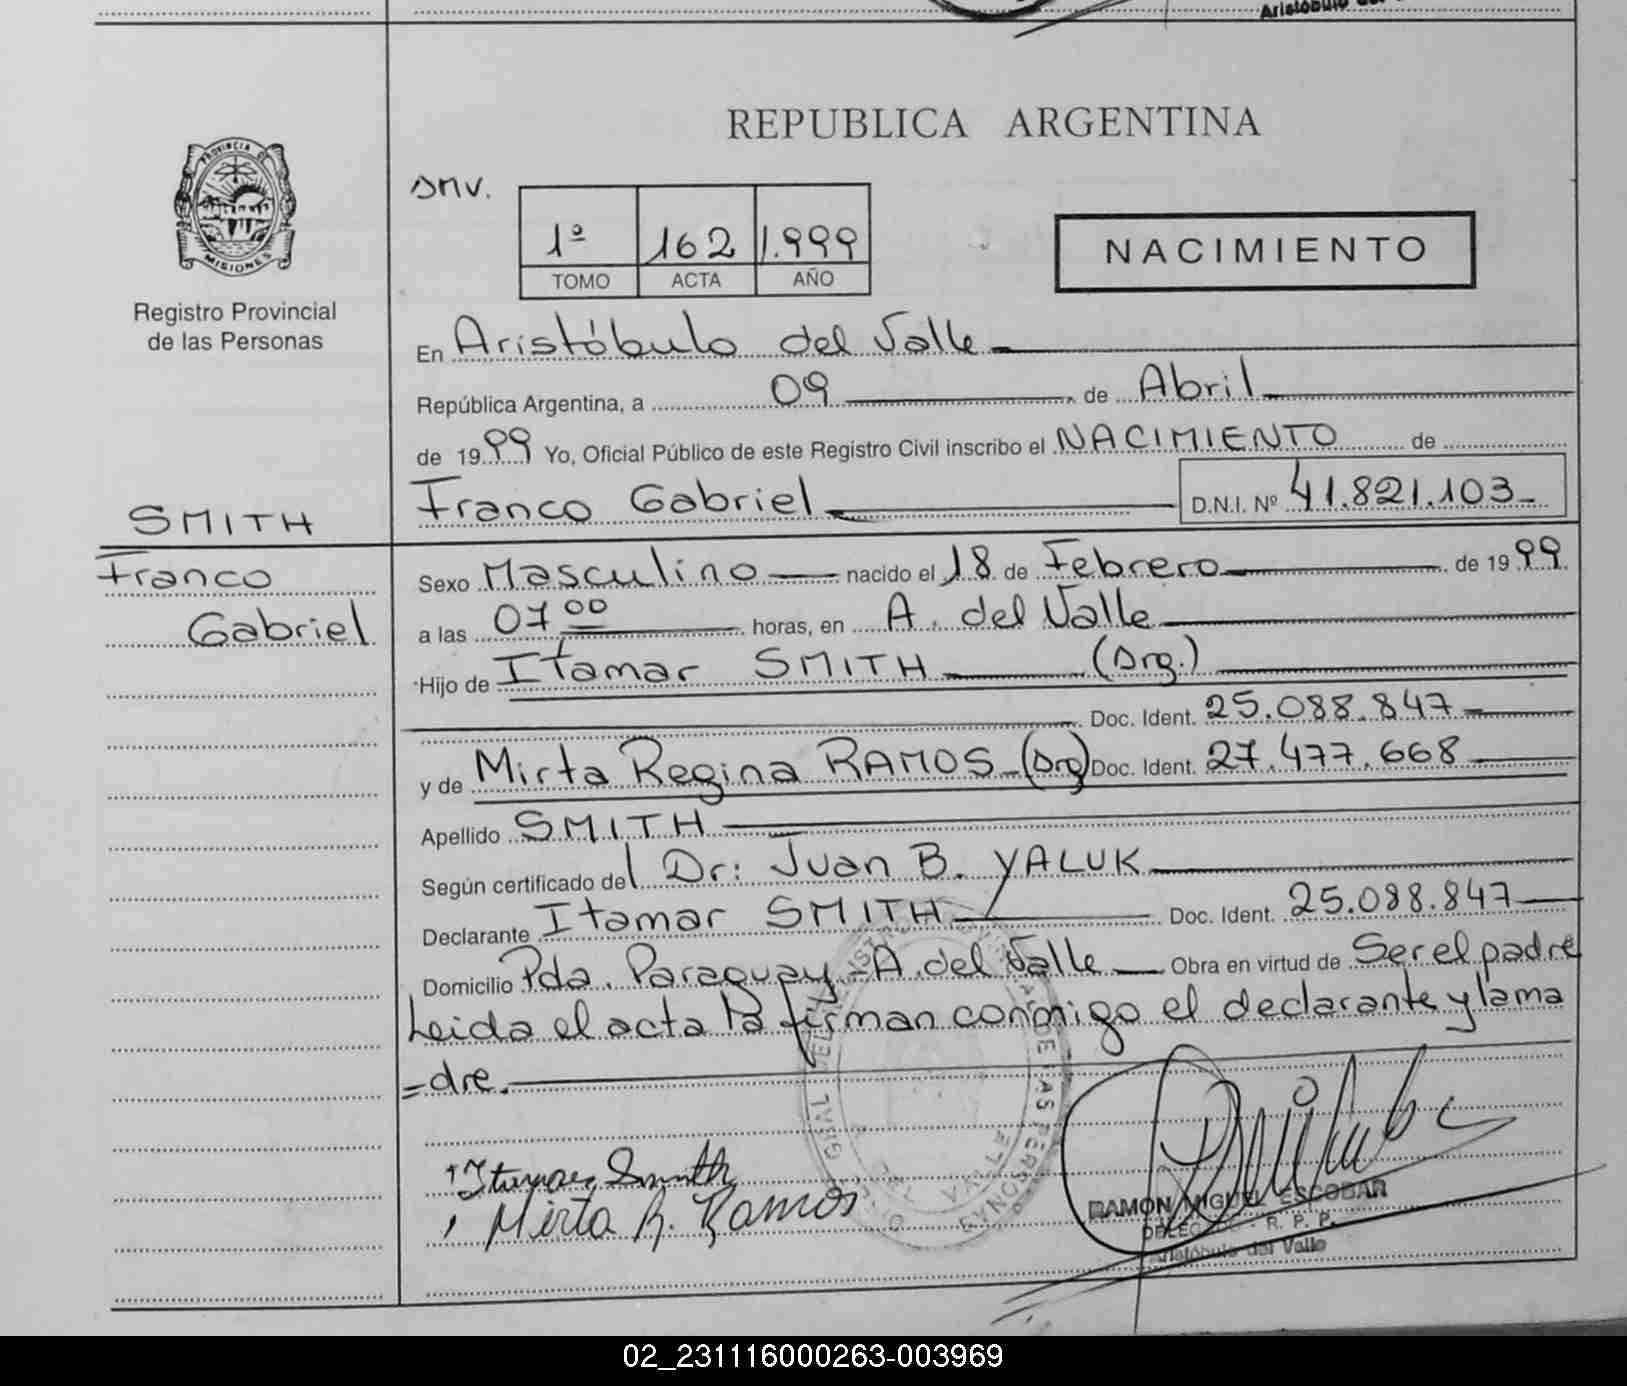 Aristóbulo del
REPUBLICA ARGENTINA
PROVINCIA DE
MISIONES
Registro Provincial
de las Personas
SMITH
Franco
Gabriel
1º 162 1.999
TOMO ACTA AÑO
NACIMIENTO
En Aristóbulo del Valle
República Argentina, a 09 de Abril
de 1999 Yo, Oficial Público de este Registro Civil inscribo el NACIMIENTO de
Franco Gabriel D.N.I. Nº 41.821.103
Sexo Masculino nacido el 18 de Febrero de 1999
a las 07 00 horas, en A. del Valle
Hijo de Itamar SMITH (Arg.)
Doc. Ident. 25.088.847
y de Mirta Regina RAMOS (Arg) Doc. Ident. 27.477.668
Apellido SMITH
Según certificado del Dr: Juan B. YALUK
Declarante Itamar SMITH Doc. Ident. 25.088.847
Domicilio Pda. Paraguay - A. del Valle Obra en virtud de Ser el padre
Leida el acta la firman conmigo el declarante y la ma
=dre.
Itamar Smith
Mirta R. Ramos
RAMON MIGUEL ESCOBAR
DELEGADO - R. P. P.
Aristóbulo del Valle
02_231116000263-003969